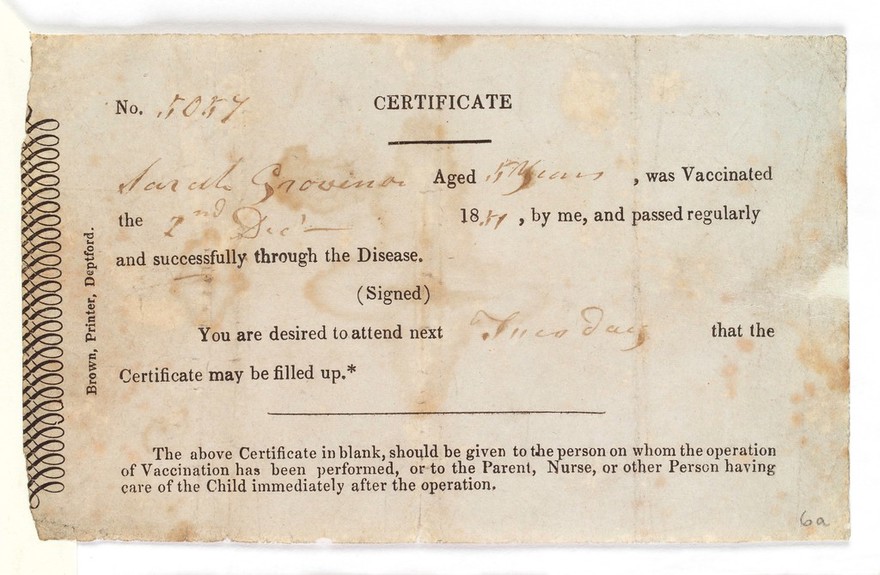 No. 5057 CERTIFICATE
Sarah Aged 5 Years , was Vaccinated
the 2nd Decr 1851 , by me, and passed regularly
and successfully through the Disease.
(Signed)
You are desired to attend next Tuesday that the
Certificate may be filled up.*
The above Certificate in blank, should be given to the person on whom the operation
of Vaccination has been performed, or to the Parent, Nurse, or other Person having
care of the Child immediately after the operation.
Brown, Printer, Deptford.
6a